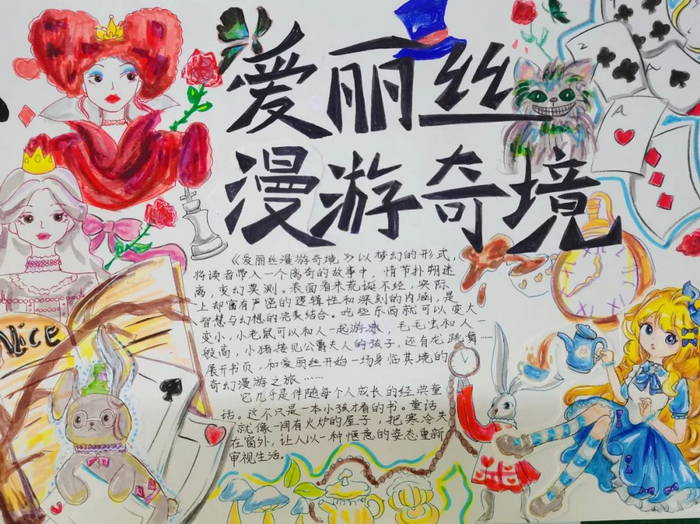 爱丽丝
漫游奇境
《爱丽丝漫游奇境》以梦幻的形式，
将读者带入一个离奇的故事中，情节扑朔迷
离，变幻莫测。表面看来荒诞不经，实际
上却富有严密的逻辑性和深刻的内涵，是
智慧与幻想的完美结合。吃些东西就可以变大
变小，小老鼠可以和人一起游泳，毛毛虫和人一
般高，小猪是公爵夫人的孩子，还有龙虾
展开书页，和爱丽丝开始一场身临其境的
奇幻漫游之旅……
它几乎是伴随每个人成长的经典童
话。这不只是一本小孩才看的书。童话
就像一间有火炉的屋子，把寒冷关
在窗外，让人以一种惬意的姿态重新
审视生活。
A
A
2